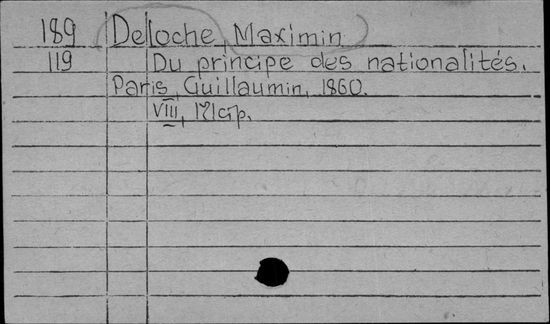 189 Deloche, Maximin
119 Du principe des nationalités.
Paris, Guillaumin, 1860.
VIII,